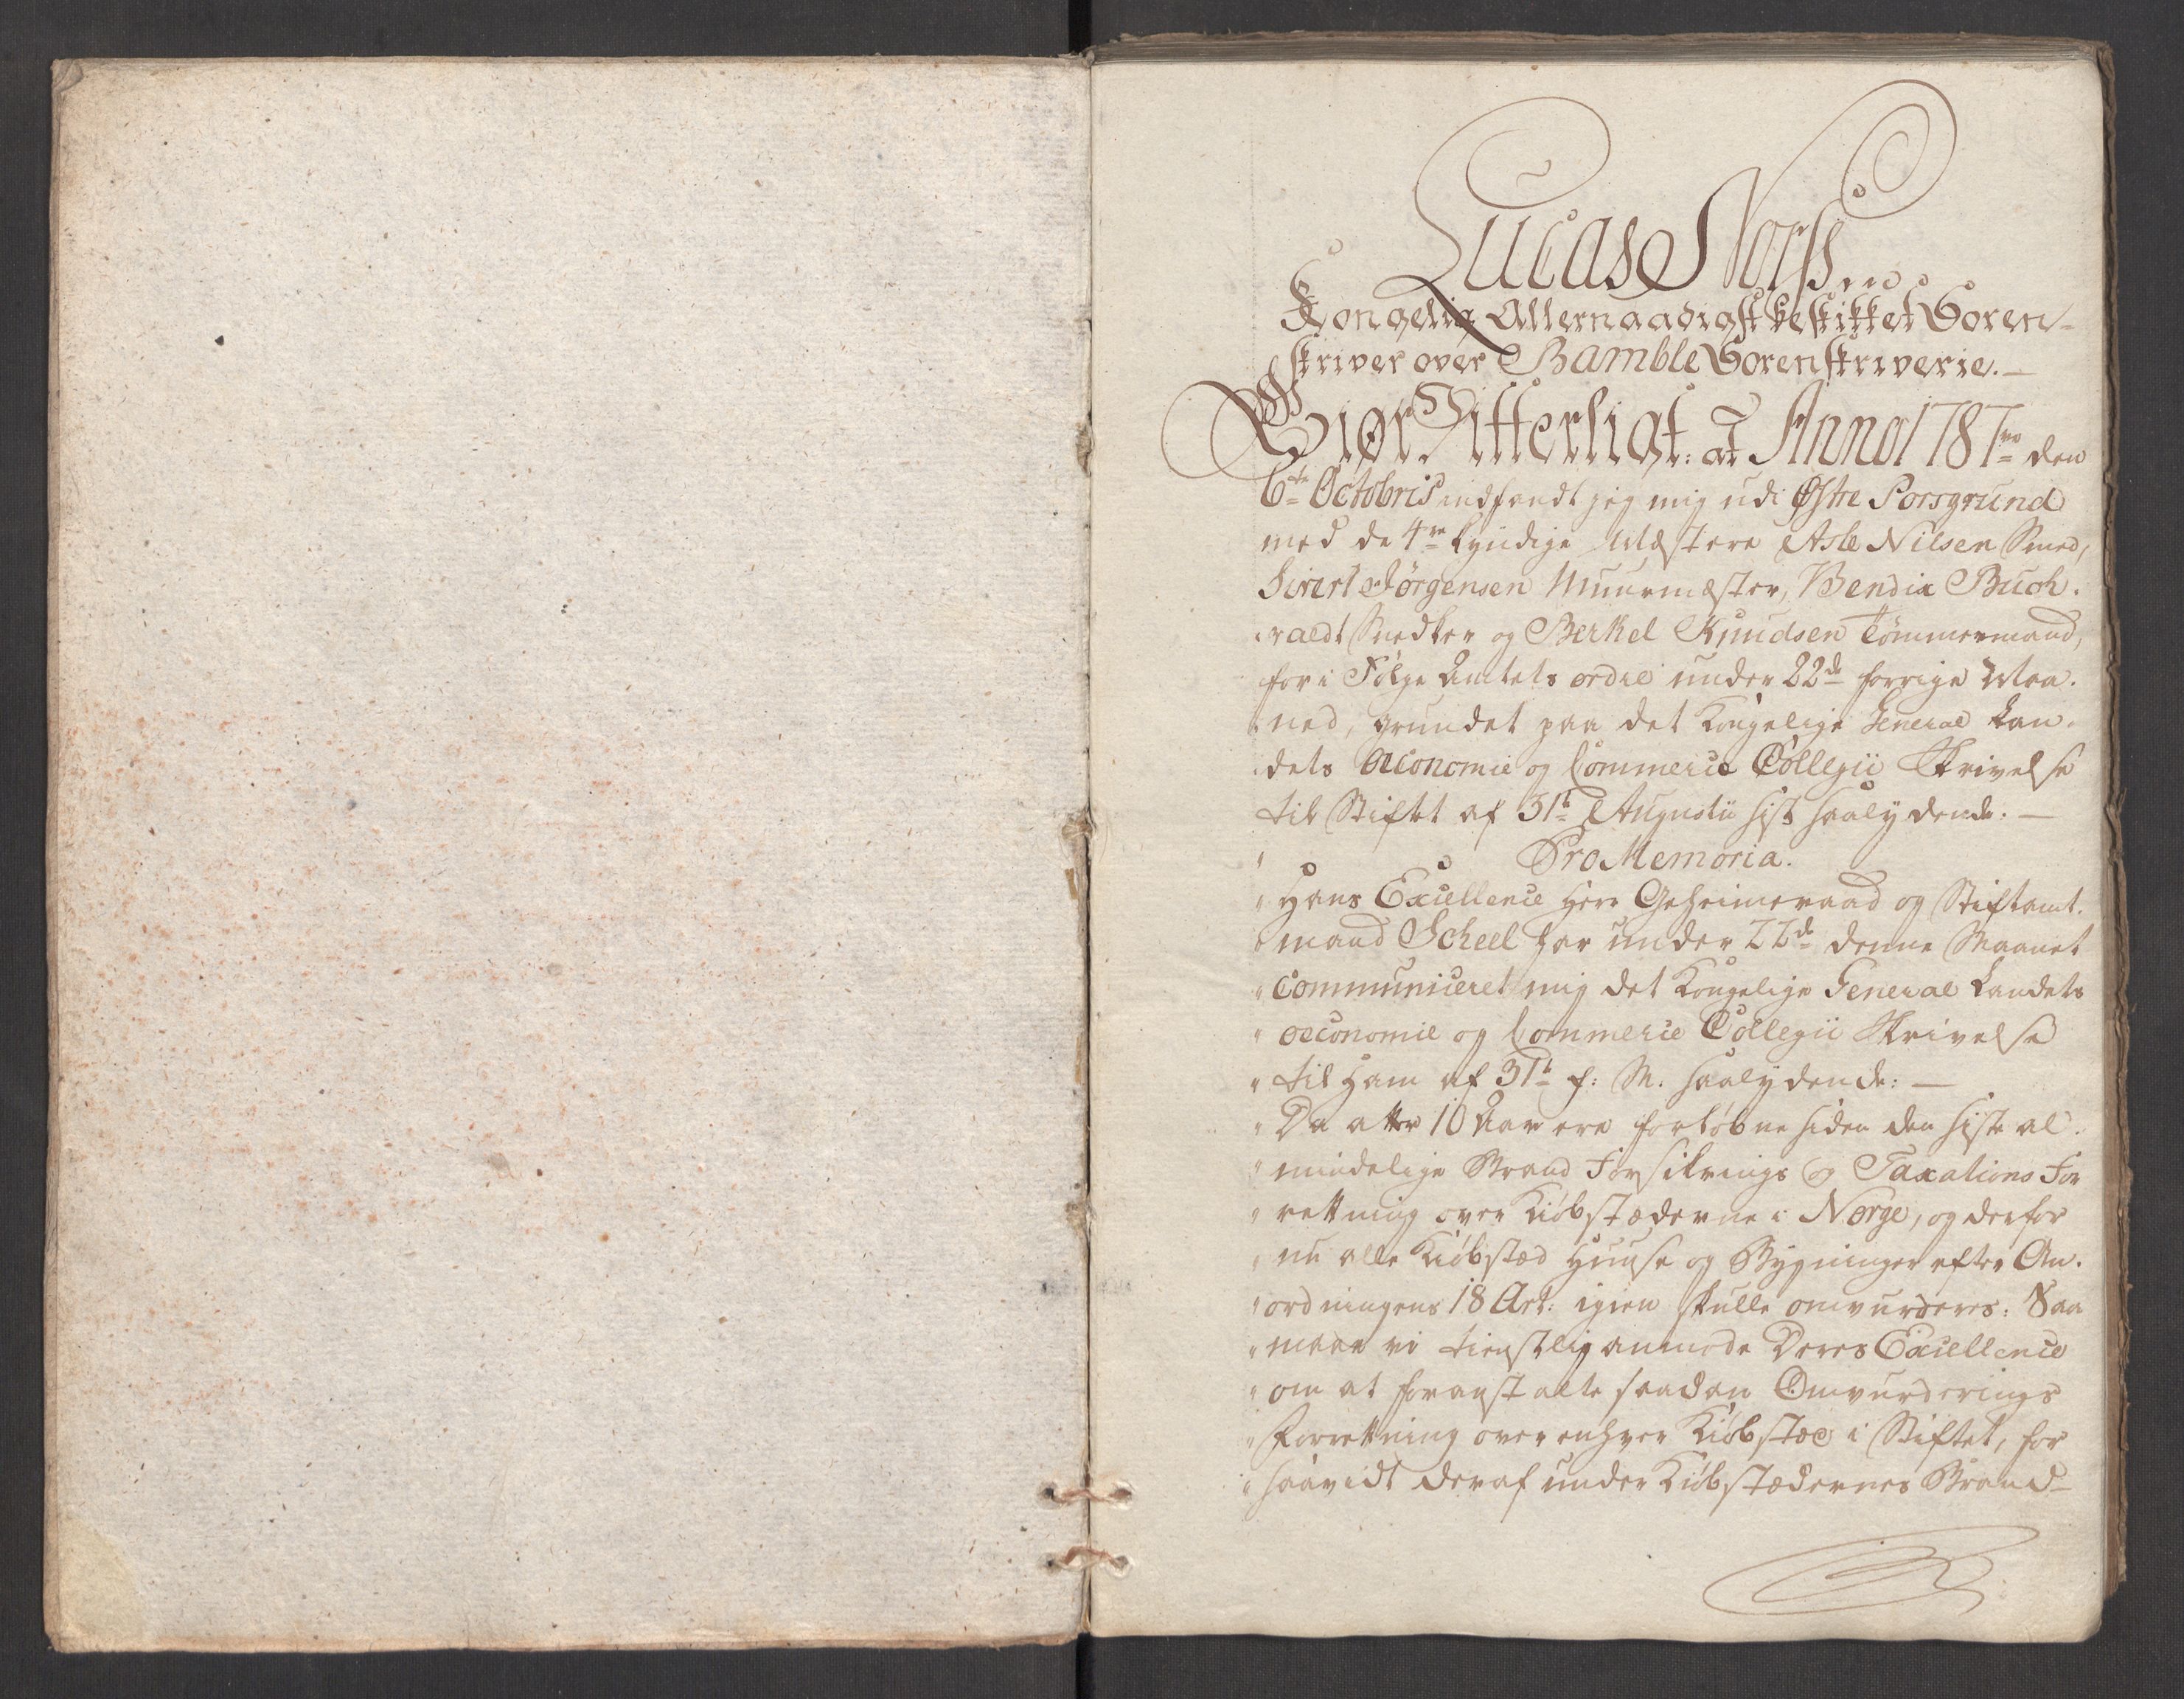 Lucas Norss
Kongelig Allernaadigst beskikket Soren-
skriver over Bamble Sorenskriverie.
Giør Vitterligt: at Anno 1787mo den
6te Octobris indfandt jeg mig udi Østre Porsgrund
med de 4re kyndige Mæstere Asle Nilsen Smed,
Sivert Jørgensen Muurmæster, Bendix Buch-
waldt Snedker og Berkel Knudsen Tømmermand,
for i Følge Amtets ordre under 22de forrige Maa-
ned, grundet paa det Kongelige General Lan-
dets Oeconomie og Commerce Collegii Skrivelse
til Stiftet af 31te Augustii sist saalydende. —
Pro Memoria.
" Hans Excellence Herr Geheimeraad og Stiftamt-
" mand Scheel har under 22de denne Maanet
" Communiceret mig det Kongelige General Landets
" Oeconomie og Commerce Collegii Skrivelse
" til Ham af 31te f: M. saalydende: —
" Da atter 10 Aar ere forløbne siden den siste al-
" mindelige Brand Forsikrings og Taxations For
" rettning over Kiøbstæderne i Norge, og derfor
" nu alle Kiøbstæd Huuse og Bygninger efter An-
" ordningens 18 Art: igien skulle omvurderes: Saa
" maae vi tienstlig anmode Deres Excellence
" om at foranstalte saadan Omvurderings
" Forrettning over enhver Kiøbstæd i Stiftet, for
" saavidt deraf under Kiøbstædernes Brand-